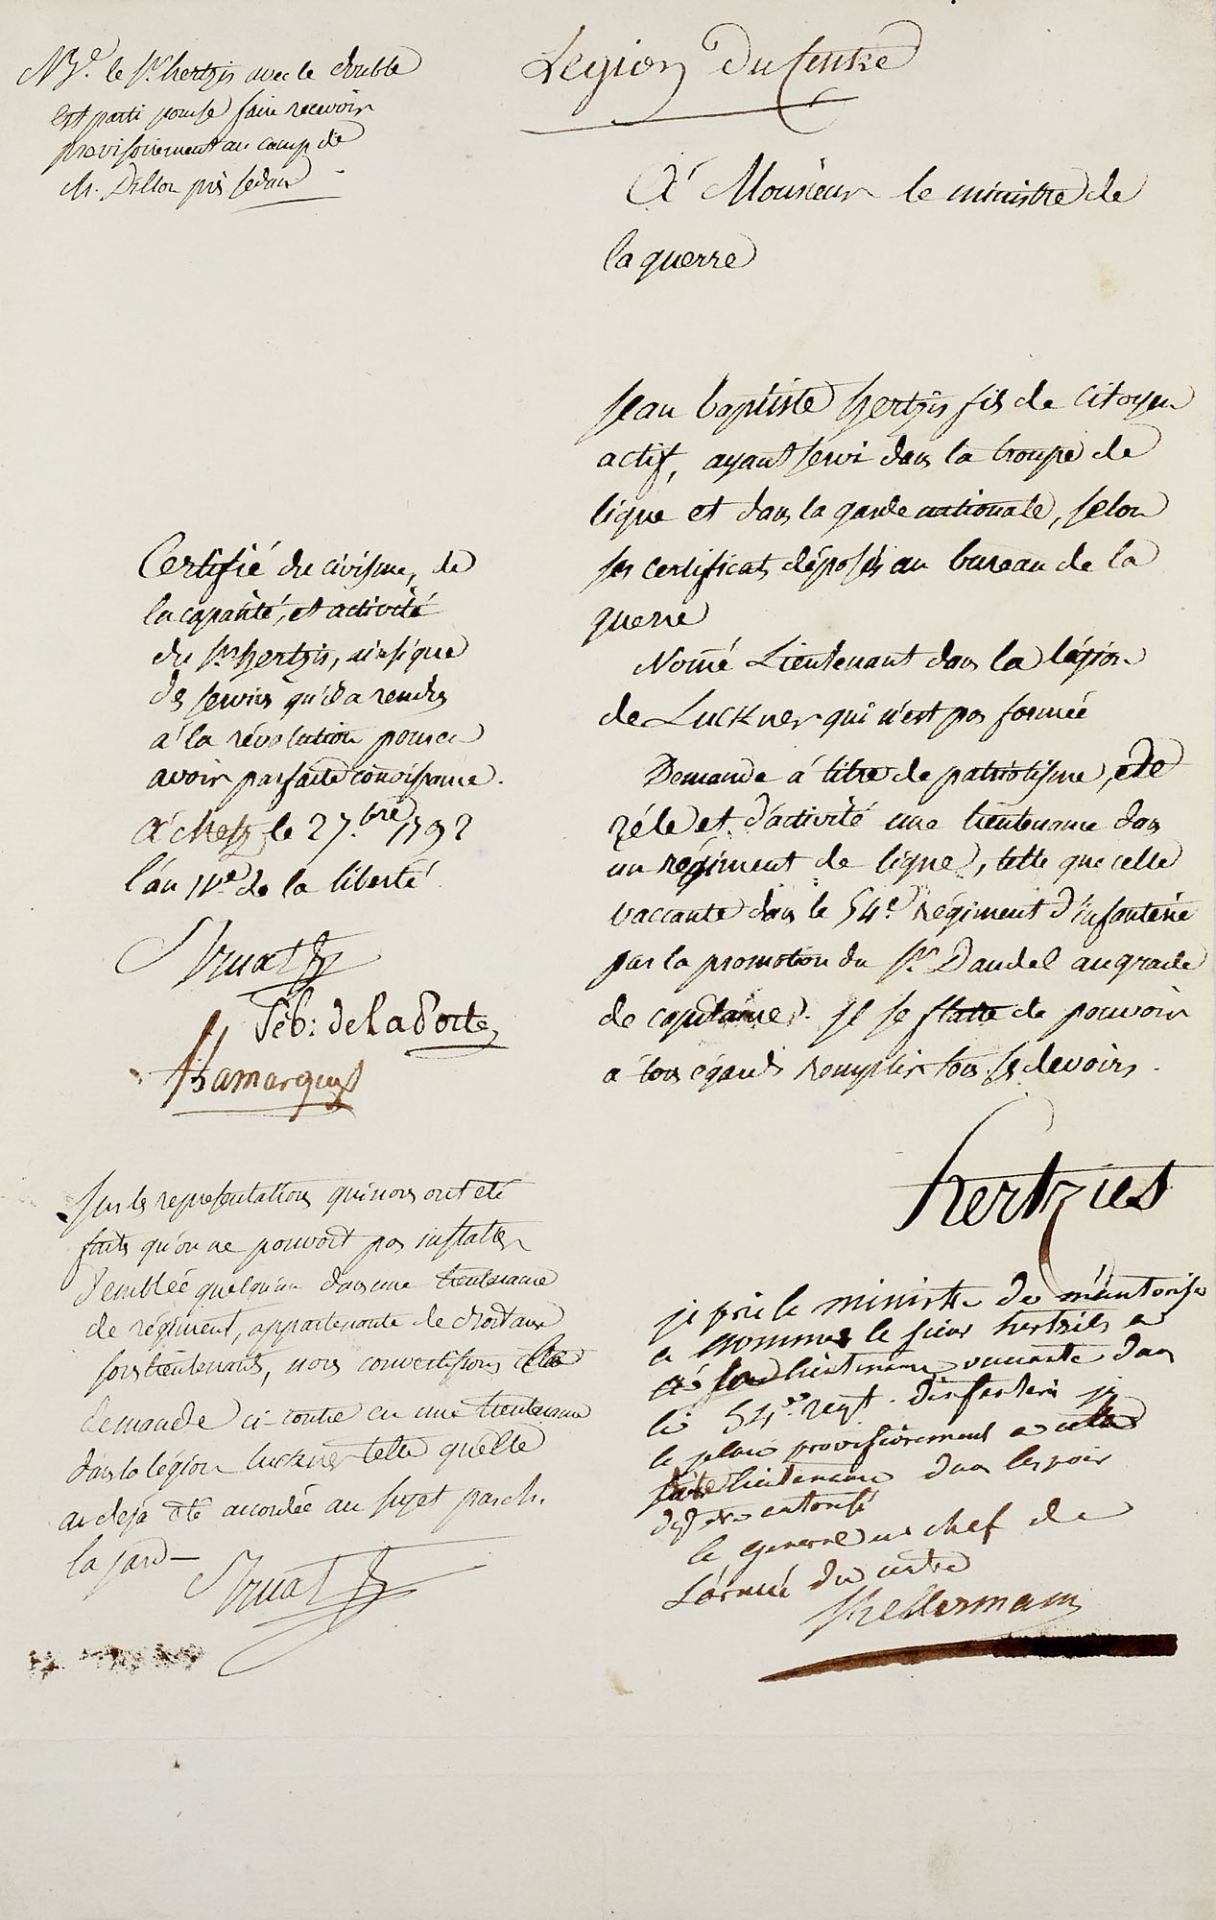 Nᵃ. le Sʳ hertzis avec le double
est parti pour se faire recevoir
provisoirement au camp de
M. Dillon près Sedan
Legion Du Centre
A Monsieur le ministre de
la guerre
Jean baptiste hertzis fils de citoyen
actif, ayant servi dans la troupe de
ligne et dans la garde nationale, selon
ses certificats déposés au bureau de la
guerre
Nomé Lieutenant dans la légion
de Luckner qui n'est pas formée
Demande à titre de patriotisme, de
zéle et d'activité une lieutenance dans
un régiment de ligne, telle que celle
vaccante dans le 54e Régiment d'infanterie
par la promotion du Sʳ Daudel au grade
de capitaine. Il se flatte de pouvoir
à tous égards remplir tous ses devoirs.
hertzies
Certifié du civisme, de
la capacité, et activité
du Sʳ hertzis, ainsi que
des services qu'il a rendus
à la révolution pour en
avoir parfaite connoissance.
A Metz le 27.bre 1792
l'an IVe de la liberté
Bruat
Séb: de la Porte
Lamarque
Sur les représentations qui nous ont été
faites qu'on ne pouvoit pas installer
d'emblée quelqu'un dans une lieutenance
de régiment, appartenante de droit aux
souslieutenants, nous convertissons cette
demande ci-contre en une lieutenance
dans la légion luckner telle quelle
a déjà été accordée au sujet par M.
la jard
Bruat
je prie le ministre de m'autoriser
a nommer le sieur hertzies a
a la lieutenance vaccante dans
le 54e regt. d'infanterie je
le place provisoirement a cette
lieutenance dans l'espoir
d'y etre autorisé
le general en chef de
L'armée du centre
Kellermann